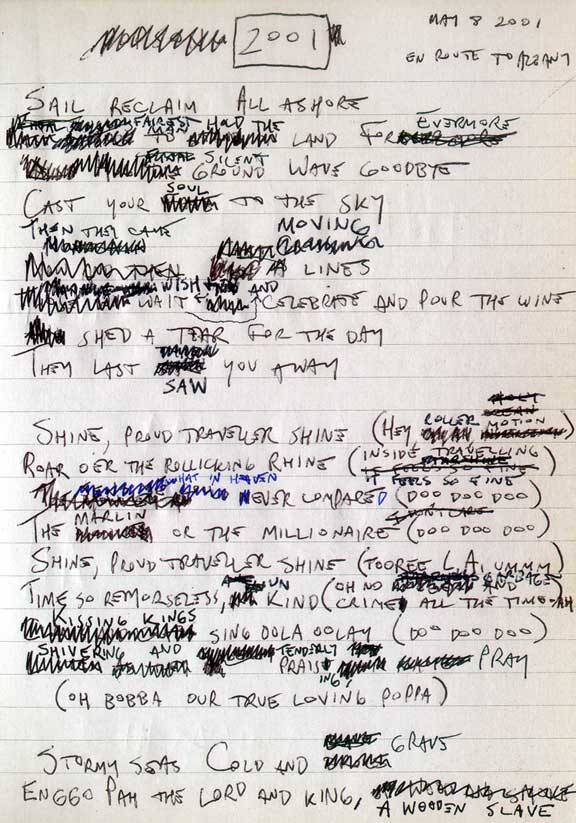 2001
MAY 8 2001
EN ROUTE TO ALBANY
SAIL RECLAIM ALL ASHORE
FAIREST HOLD THE
TO LAND FOR EVERMORE
SILENT
GROUND WAVE GOODBYE
SOUL
CAST YOUR TO THE SKY
THEN THEY CAME MOVING
THEN LINES
WISH AND
WAIT CELEBRATE AND POUR THE WINE
SHED A TEAR FOR THE DAY
THEY LAST YOU AWAY
SAW
SHINE, PROUD TRAVELLER SHINE (HEY, ROLLER MOTION)
ROAR O'ER THE ROLLICKING RHINE (INSIDE TRAVELLING
IT FEELS SO FINE
WHAT 'N HEAVEN
NEVER COMPARED (DOO DOO DOO)
MARLIN
THE OR THE MILLIONAIRE (DOO DOO DOO)
SHINE, PROUD TRAVELLER SHINE (TOOREE L.A. UMMM)
UN GARBAGE
TIME SO REMORSELESS, KIND (OH NO AND
CRIME ALL THE TIME-AH
KISSING KINGS
SING OOLA OOLAY (DOO DOO DOO)
SHIVERING AND TENDERLY
PRAIS PRAY
ING,
(OH BOBBA OUR TRUE LOVING POPPA)
STORMY SEAS COLD AND GRAVE
ENGGO PAH THE LORD AND KING,
A WOODEN SLAVE